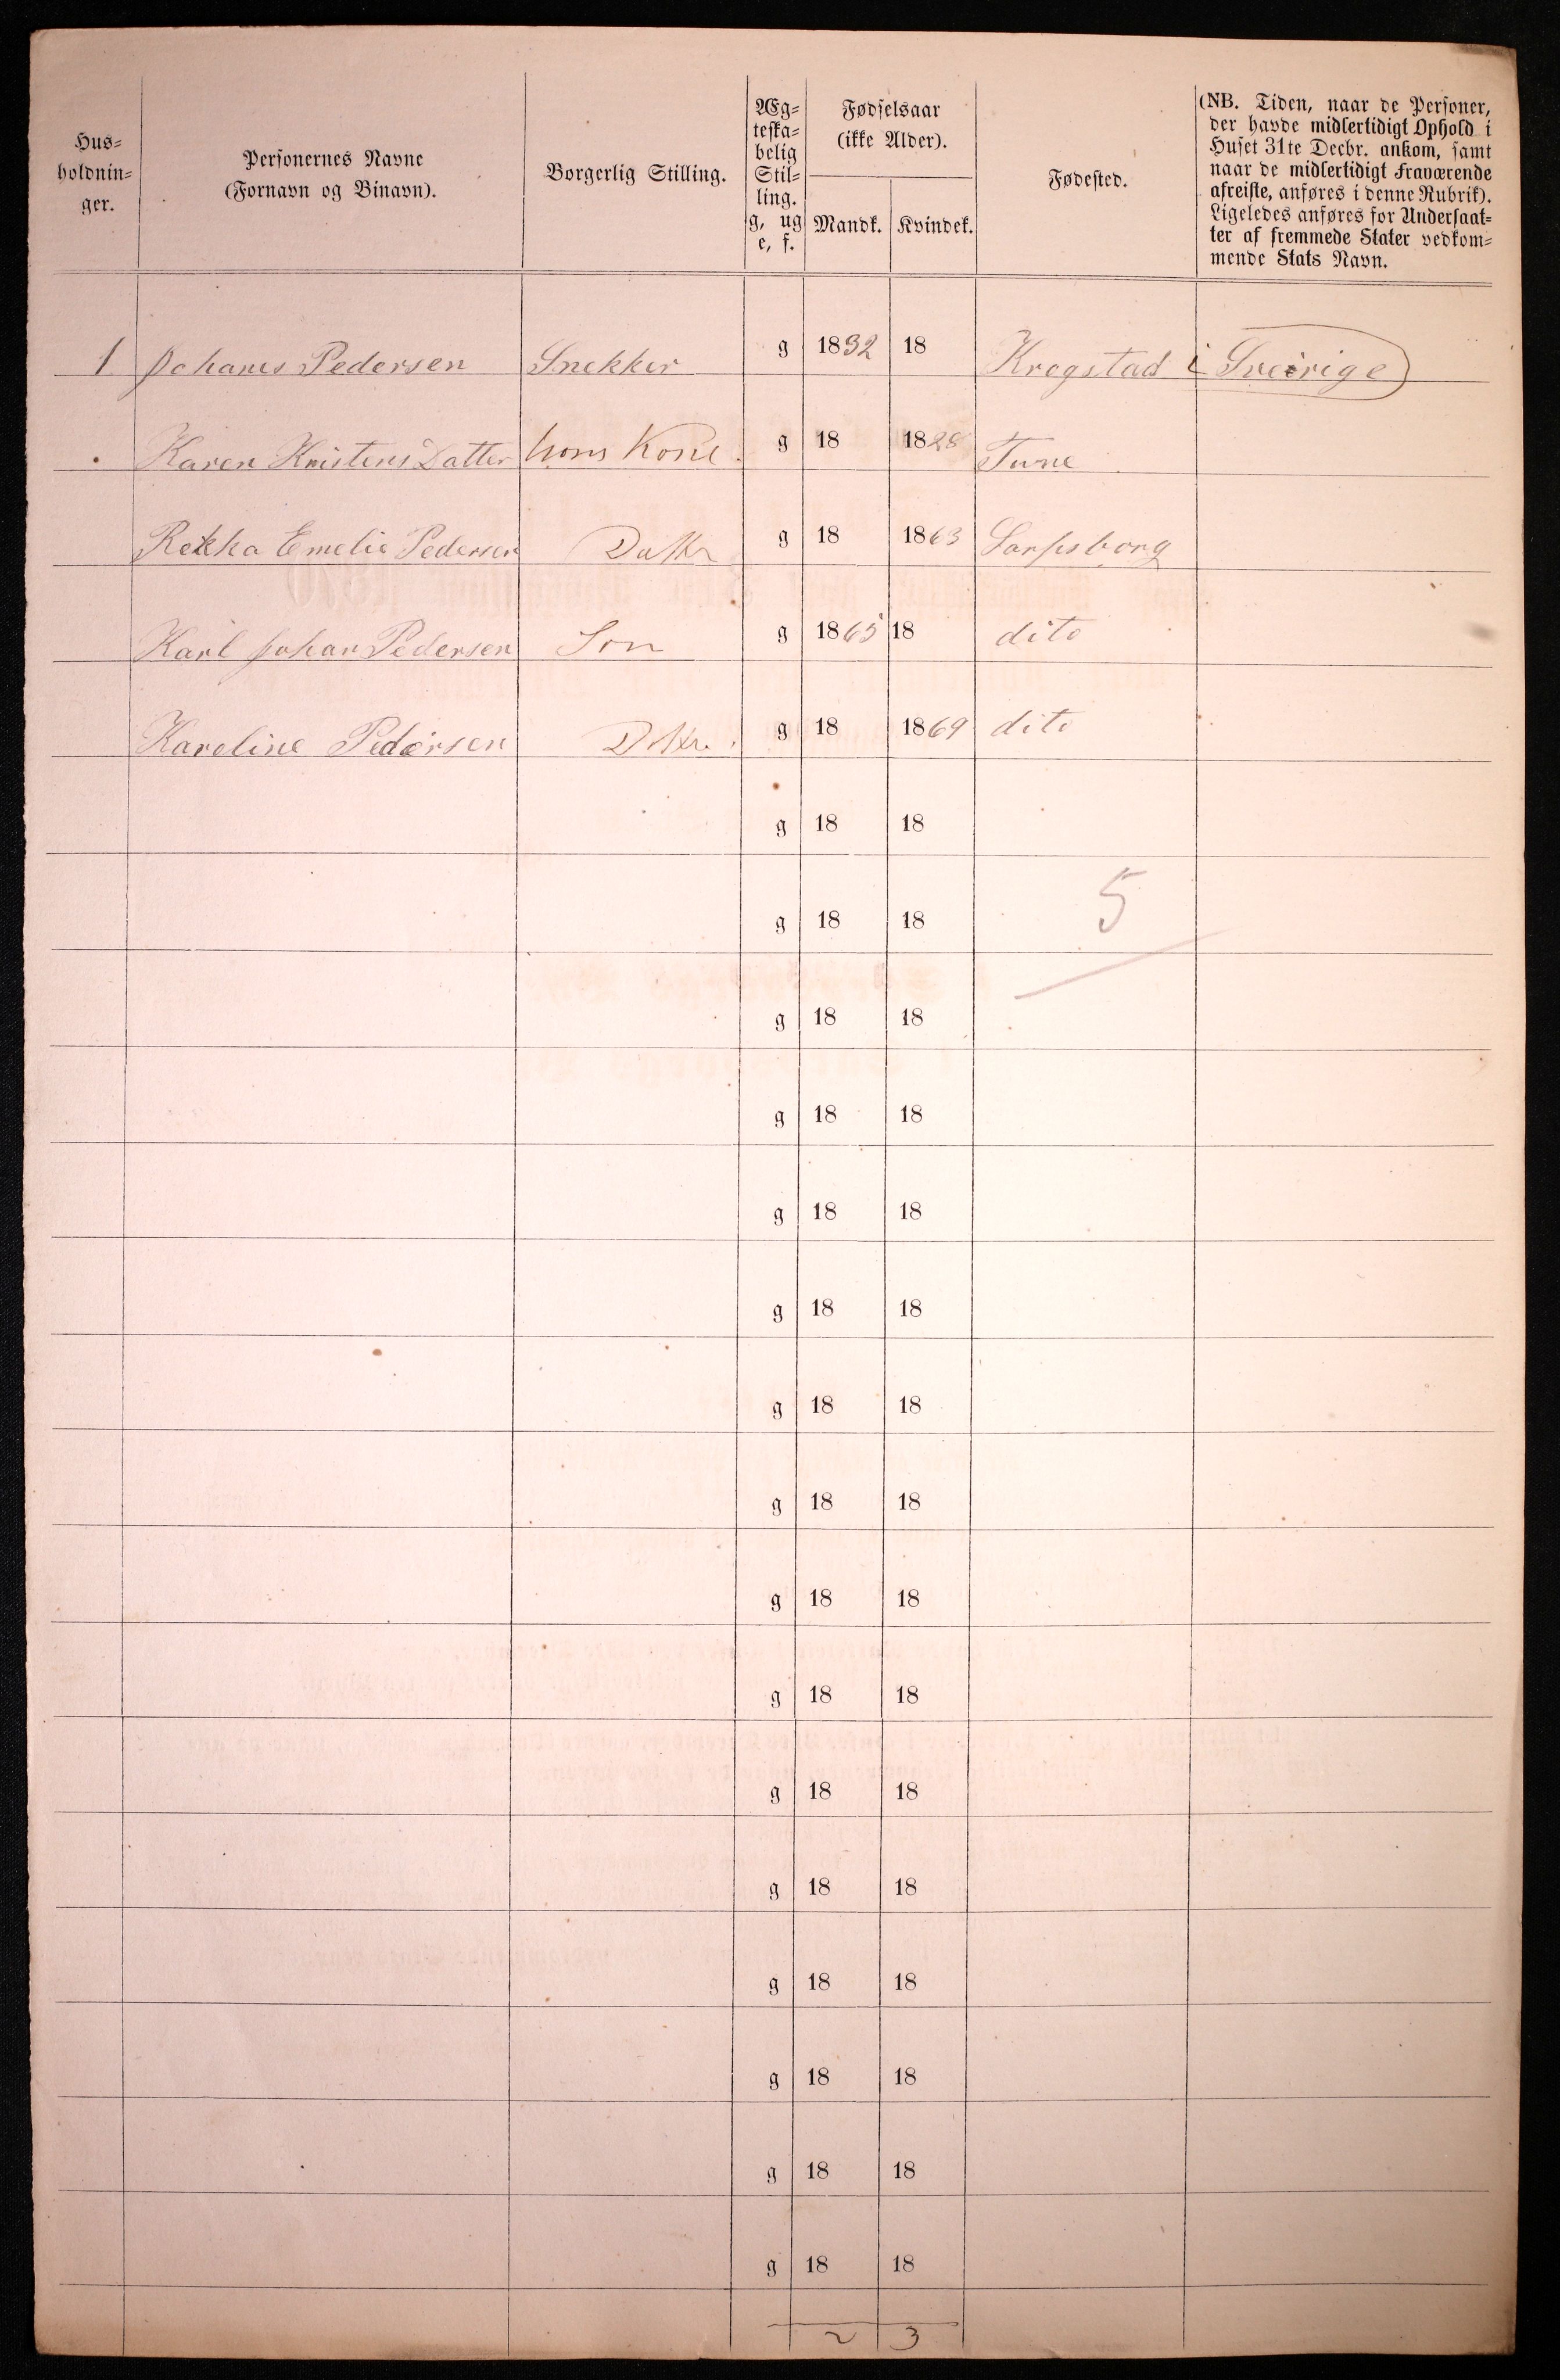 Hus-
holdnin-
ger.
Personernes Navne
(Fornavn og Binavn).
Borgerlig Stilling.
Æg-
teska-
belig
Stil-
ling.
g, ug
e, f.
Fødselsaar
(ikke Alder).
Mandk. Kvindek.
Fødested.
(NB. Tiden, naar de Personer,
der havde midlertidigt Ophold i
Huset 31te Decbr. ankom, samt
naar de midlertidigt Fraværende
afreiste, anføres i denne Rubrik).
Ligeledes anføres for Undersaat-
ter af fremmede Stater vedkom-
mende Stats Navn.
1 Johanes Pedersen Snekker g 1832 18 Krogstad i Sveirige
Karen Kristens Datter hans Kone g 18 1828 Tune
Emelie Pedersen Datter g 18 1863 Sarpsborg
Karl Johan Pedersen Søn g 1865 18 dito
Karoline Pedersen Datter g 18 1869 dito
g 18 18
g 18 18 5
g 18 18
g 18 18
g 18 18
g 18 18
g 18 18
g 18 18
g 18 18
g 18 18
g 18 18
g 18 18
g 18 18
g 18 18
g 18 18
g 18 18
2 3